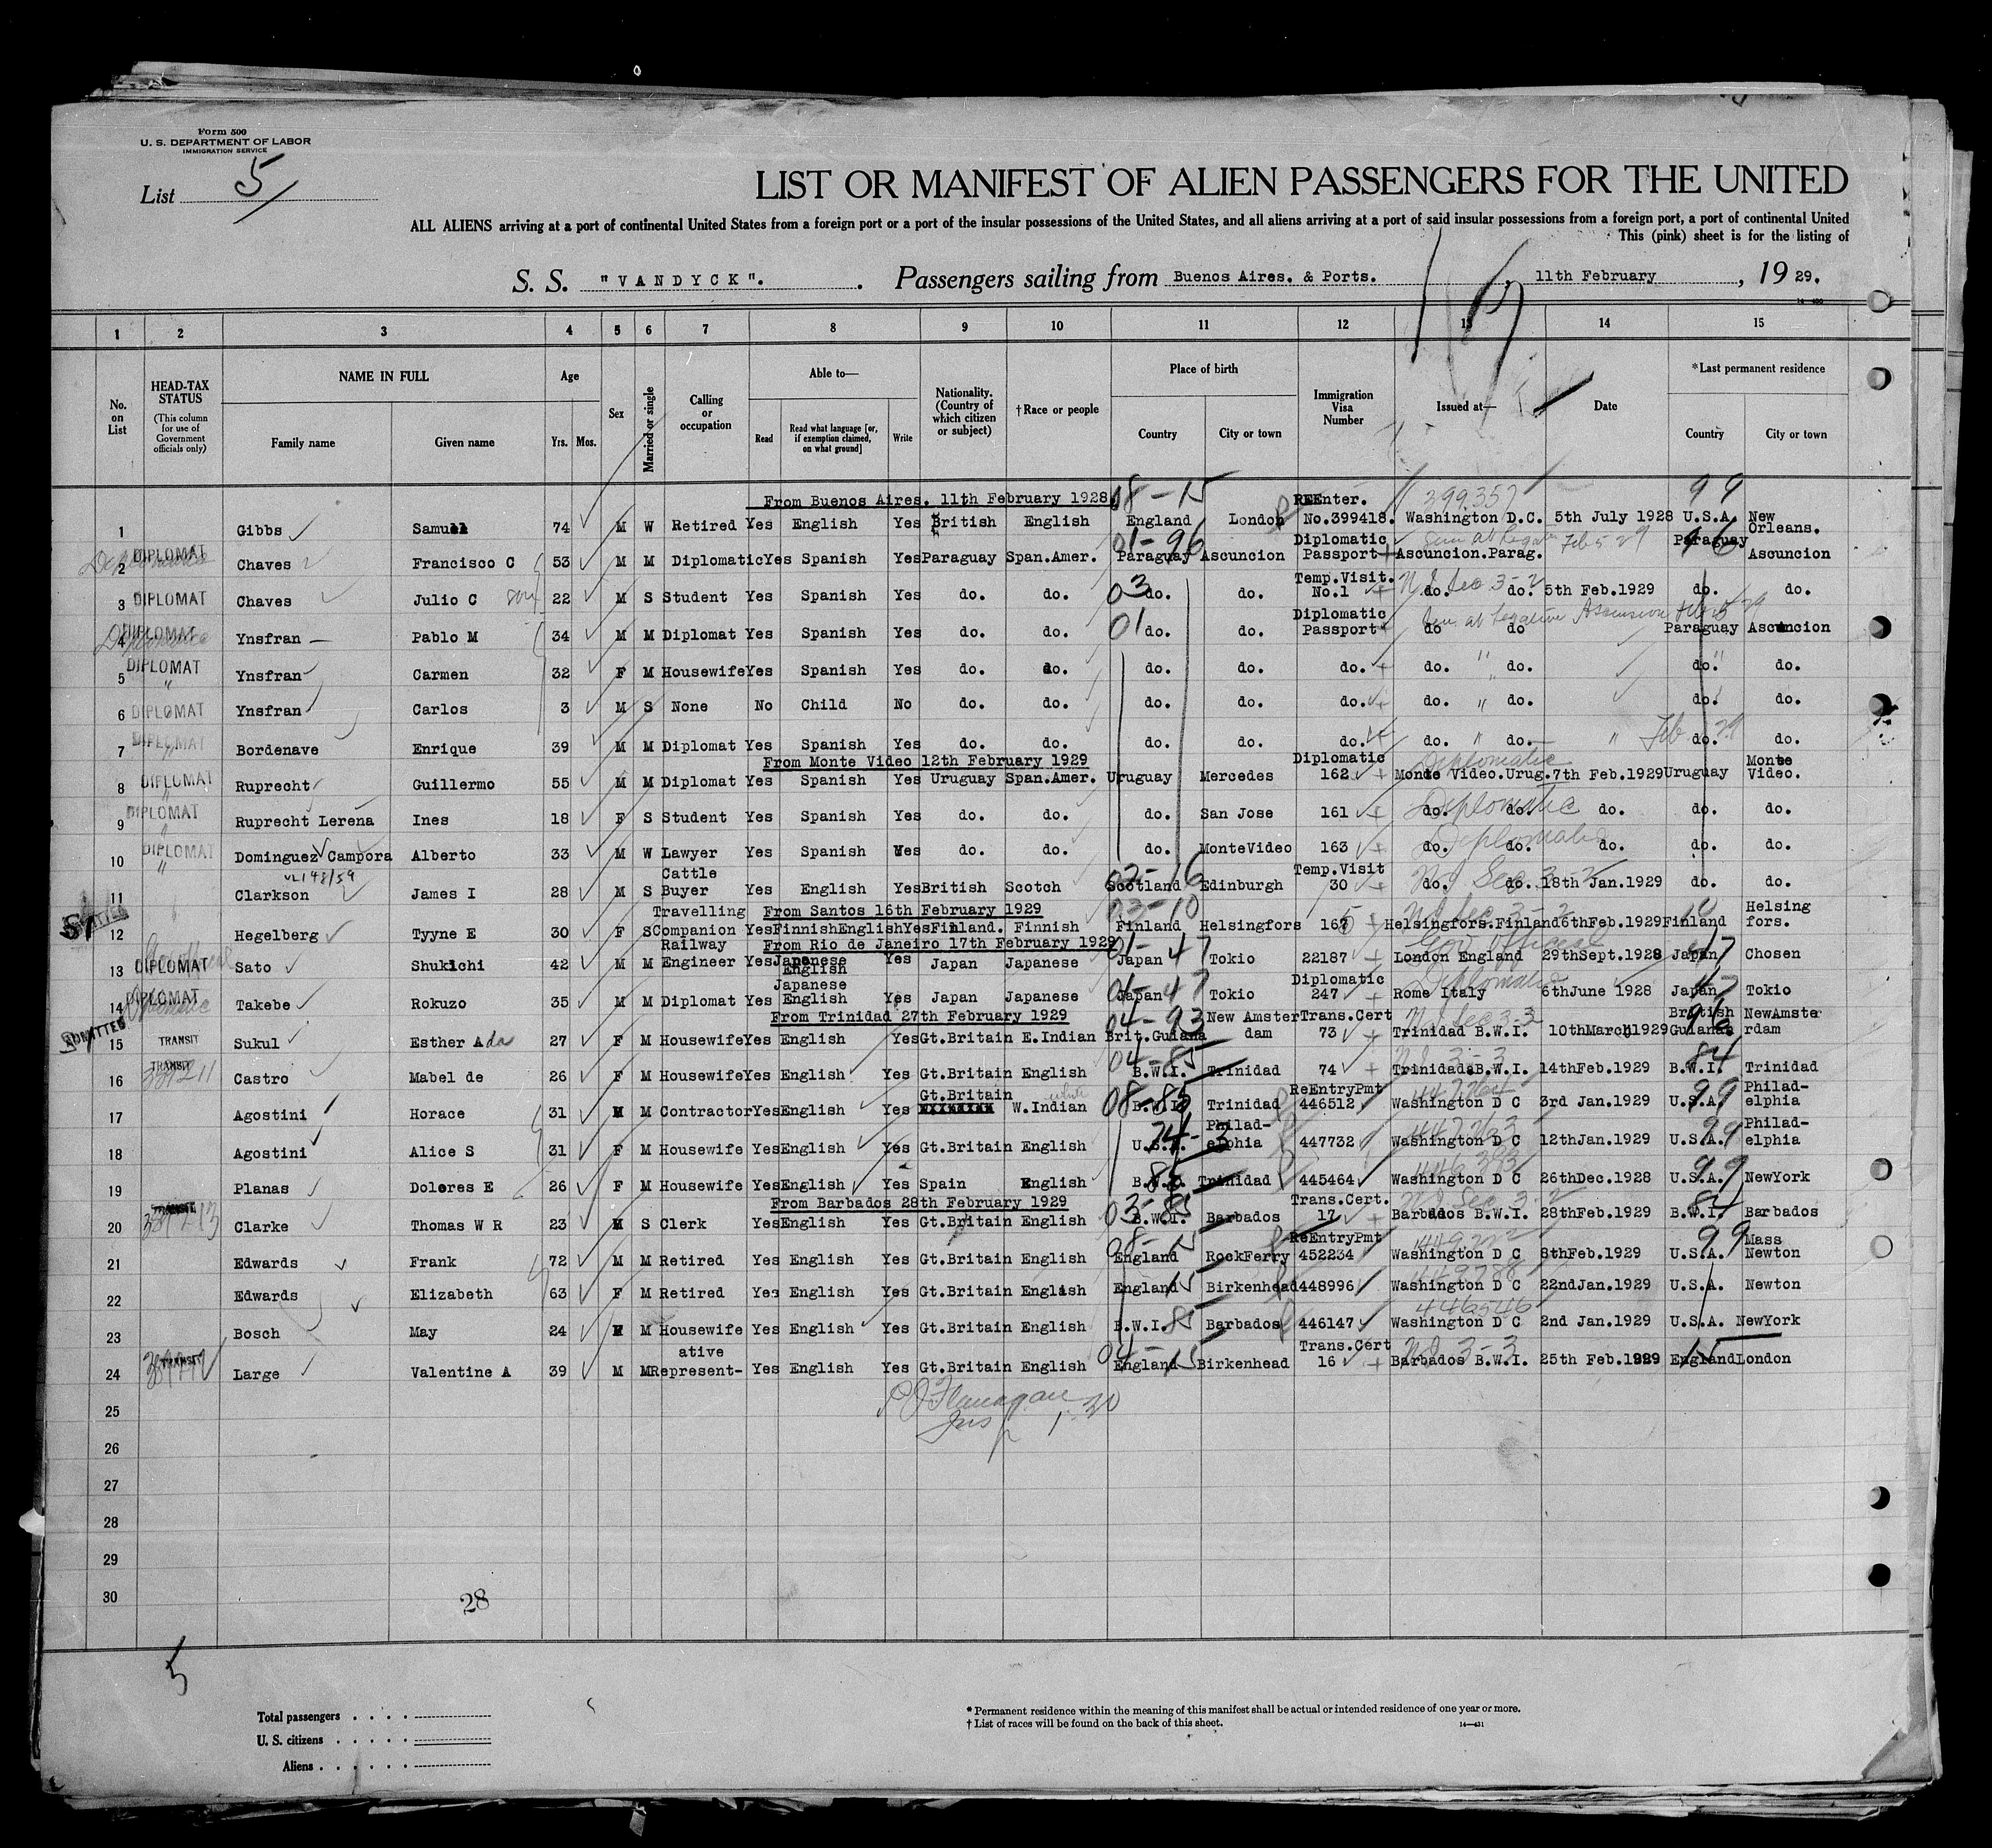 Form 500
U. S. DEPARTMENT OF LABOR
IMMIGRATION SERVICE
List 5
LIST OR MANIFEST OF ALIEN PASSENGERS FOR THE UNITED
ALL ALIENS arriving at a port of continental United States from a foreign port or a port of the insular possessions of the United States, and all aliens arriving at a port of said insular possessions from a foreign port, a port of continental United
This (pink) sheet is for the listing of
S. S. "VANDYCK". Passengers sailing from Buenos Aires. & Ports. 11th February, 1929.
1 2 3 4 5 6 7 8 9 10 11 12 13 14 15
No. on List
HEAD-TAX STATUS
(This column for use of Government officials only)
NAME IN FULL
Family name Given name
Age
Yrs. Mos.
Sex
Married or single
Calling or occupation
Able to—
Read
Read what language [or, if exemption claimed, on what ground]
Write
Nationality. (Country of which citizen or subject)
†Race or people
Place of birth
Country City or town
Immigration Visa Number
Issued at—
Date
*Last permanent residence
Country City or town
From Buenos Aires. 11th February 1928. 08-15 REEnter. 399357 99
1 Gibbs Samuel 74 M W Retired Yes English Yes British English England London No.399418. Washington D.C. 5th July 1928 U.S.A. New Orleans.
2 DIPLOMAT Chaves Francisco C 53 M M Diplomatic Yes Spanish Yes Paraguay Span.Amer. 01-96 Paraguay Ascuncion Diplomatic Passport Ascuncion.Parag. Feb 5 29 Paraguay 96 Ascuncion
3 DIPLOMAT Chaves Julio C son 22 M S Student Yes Spanish Yes do. do. 03 do. do. Temp.Visit. No.1 do. do. 5th Feb.1929 do. do.
4 DIPLOMAT Ynsfran Pablo M 34 M M Diplomat Yes Spanish Yes do. do. 01 do. do. Diplomatic Passport do do Paraguay Ascuncion
5 DIPLOMAT " Ynsfran Carmen 32 F M Housewife Yes Spanish Yes do. do. do. do. do. do. " do. " do. " do.
6 DIPLOMAT Ynsfran Carlos 3 M S None No Child No do. do. do. do. do. do. " do. do. do.
7 DIPLOMAT " Bordenave Enrique 39 M M Diplomat Yes Spanish Yes do. do. do. do. do. do. " do. " Feb 29 do. do.
From Monte Video 12th February 1929
8 DIPLOMAT Ruprecht Guillermo 55 M M Diplomat Yes Spanish Yes Uruguay Span.Amer. Uruguay Mercedes Diplomatic 162 Diplomatic Monte Video.Urug. 7th Feb.1929 Uruguay Monte Video.
9 DIPLOMAT " Ruprecht Lerena Ines 18 F S Student Yes Spanish Yes do. do. do. San Jose 161 Diplomatic do. do. do. do. do.
10 DIPLOMAT " Dominguez Campora Alberto 33 M W Lawyer Yes Spanish Yes do. do. do. MonteVideo 163 Diplomatic do. do. do. do. do.
11 Clarkson James I 28 M S Cattle Buyer Yes English Yes British Scotch 02-16 Scotland Edinburgh Temp.Visit 30 do. do. 18th Jan.1929 do. do.
From Santos 16th February 1929
12 Hegelberg Tyyne E 30 F S Travelling Companion Yes Finnish English Yes Finland. Finnish 03-10 Finland Helsingfors Helsingfors.Finland 6thFeb.1929 Finland Helsingfors.
From Rio de Janeiro 17th February 1929
13 DIPLOMAT Sato Shukichi 42 M M Railway Engineer Yes Japanese English Yes Japan Japanese 01-47 Japan Tokio 22187 Gov. Official London England 29thSept.1928 Japan 47 Chosen
14 DIPLOMAT Takebe Rokuzo 35 M M Diplomat Yes Japanese English Yes Japan Japanese 01-47 Japan Tokio Diplomatic 247 Diplomatic Rome Italy 6thJune 1928 Japan 47 Tokio
From Trinidad 27th February 1929
15 ADMITTED TRANSIT Sukul Esther Ada 27 F M Housewife Yes English Yes Gt.Britain E.Indian 04-93 Brit.Guiana New Amsterdam Trans.Cert 73 Trinidad B.W.I. 10thMarch1929 British Guiana NewAmsterdam
16 TRANSIT Castro Mabel de 26 F M Housewife Yes English Yes Gt.Britain English 04-85 B.W.I. Trinidad 74 Trinidad B.W.I. 14thFeb.1929 B.W.I. 84 Trinidad
17 Agostini Horace 31 M M Contractor Yes English Yes Gt.Britain W.Indian white 08-85 B.W.I. Trinidad ReEntryPmt 446512 Washington D C 3rd Jan.1929 U.S.A. 99 Philadelphia
18 Agostini Alice S 31 F M Housewife Yes English Yes Gt.Britain English U.S.A. Philadelphia 447732 Washington D C 12thJan.1929 U.S.A. 99 Philadelphia
19 Planas Dolores E 26 F M Housewife Yes English Yes Spain English Trinidad 445464 Washington D C 26thDec.1928 U.S.A. 99 NewYork
From Barbados 28th February 1929
20 TRANSIT Clarke Thomas W R 23 M S Clerk Yes English Yes Gt.Britain English 03-85 B.W.I. Barbados Trans.Cert. 17 Barbados B.W.I. 28thFeb.1929 B.W.I. Barbados
21 Edwards Frank 72 M M Retired Yes English Yes Gt.Britain English 08-15 England RockFerry ReEntryPmt 452234 Washington D C 8thFeb.1929 U.S.A. 99 Mass Newton
22 Edwards Elizabeth 63 F M Retired Yes English Yes Gt.Britain English England 15 Birkenhead 448996 Washington D C 22ndJan.1929 U.S.A. Newton
23 Bosch May 24 F M Housewife Yes English Yes Gt.Britain English B.W.I. 85 Barbados 446147 446546 Washington D C 2nd Jan.1929 U.S.A. NewYork
24 TRANSIT Large Valentine A 39 M M Representative Yes English Yes Gt.Britain English 04-15 England Birkenhead Trans.Cert 16 Barbados B.W.I. 25th Feb.1929 England 15 London
25
26
27
28
29
30
28
5
Total passengers
U. S. citizens
Aliens
* Permanent residence within the meaning of this manifest shall be actual or intended residence of one year or more.
† List of races will be found on the back of this sheet.
14—431